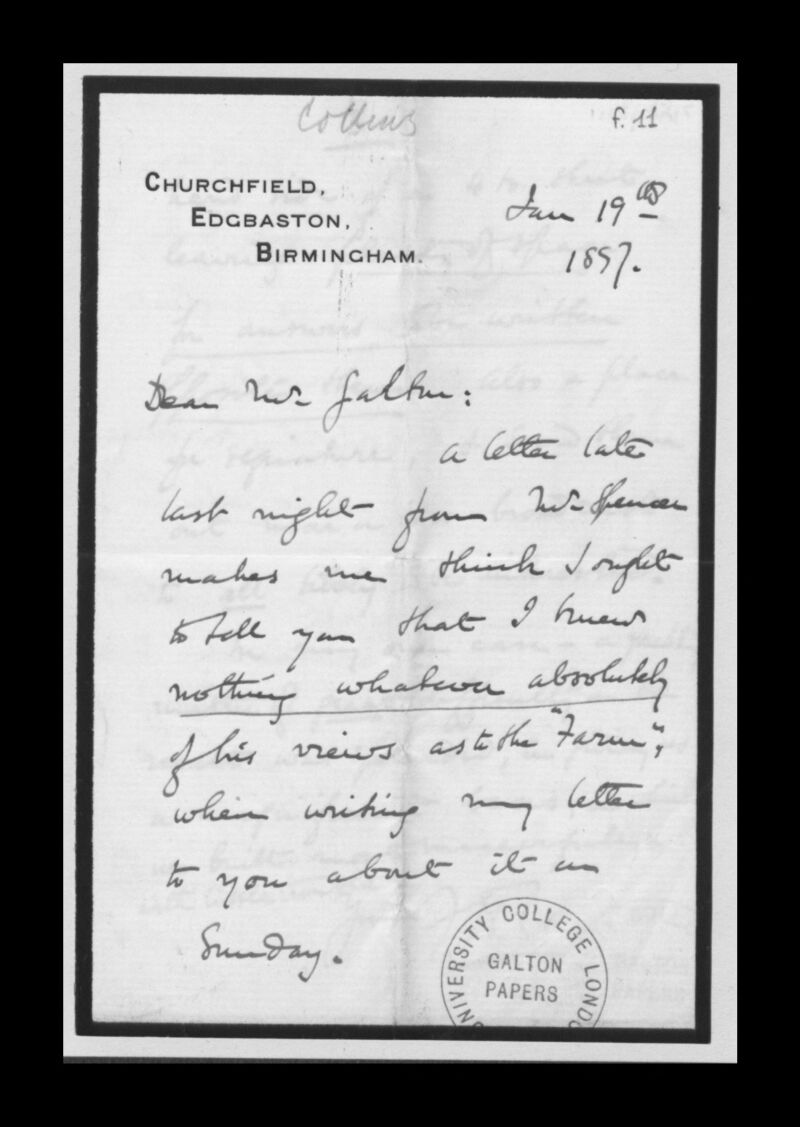 Collins
f. 11
CHURCHFIELD,
EDGBASTON,
BIRMINGHAM.
Jan 19th
1897.
Dear Mr Galton:
a letter late
last night from Mr Spencer
makes me think I ought
to tell you that I knew
nothing whatever absolutely
of his views as to the "Farm",
when writing my letter
to you about it on
Sunday.
UNIVERSITY COLLEGE LONDO
GALTON
PAPERS